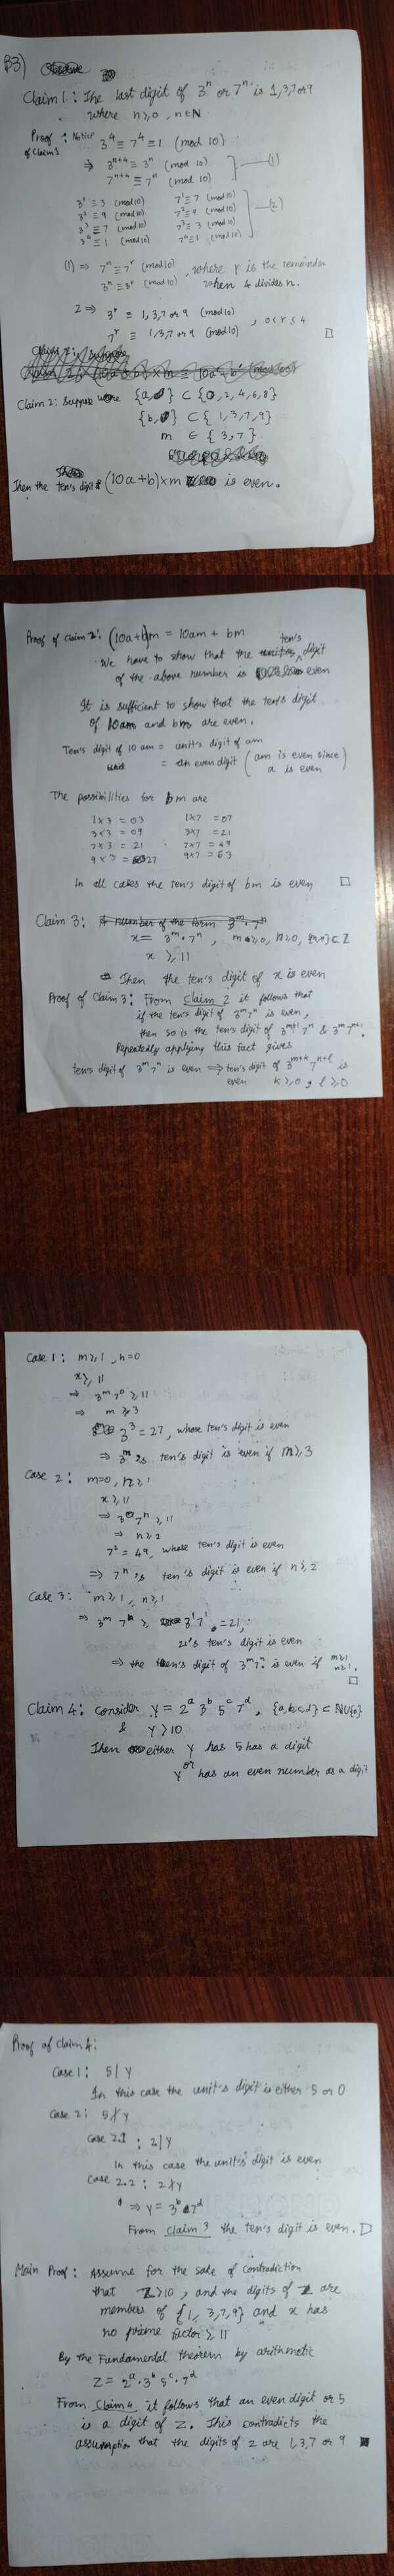 B3)
Claim 1: The last digit of 3ⁿ or 7ⁿ is 1,3,7 or 9
where n≥0, n∈N
Proof of Claim 1: Notice 3⁴ ≡ 7⁴ ≡ 1 (mod 10)
⇒ 3ⁿ⁺⁴ ≡ 3ⁿ (mod 10)
7ⁿ⁺⁴ ≡ 7ⁿ (mod 10) —(1)
3¹ ≡ 3 (mod 10) 7¹ ≡ 7 (mod 10)
3² ≡ 9 (mod 10) 7² ≡ 9 (mod 10)
3³ ≡ 7 (mod 10) 7³ ≡ 3 (mod 10) —(2)
3⁴ ≡ 1 (mod 10) 7⁴ ≡ 1 (mod 10)
(1) ⇒ 7ⁿ ≡ 7ʳ (mod 10), where r is the remainder
3ⁿ ≡ 3ʳ (mod 10) when 4 divides n.
2 ⇒ 3ʳ ≡ 1,3,7 or 9 (mod 10)
7ʳ ≡ 1,3,7 or 9 (mod 10), 0<r≤4 □
Claim 2: Suppose {a,0} ⊂ {0,2,4,6,8}
{b} ⊂ {1,3,7,9}
m ∈ {3,7}
Then the ten's digit (10a+b)×m is even.
Proof of Claim 2: (10a+b)m = 10am + bm
We have to show that the ten's digit
of the above number is even
It is sufficient to show that the ten's digit
of 10am and bm are even.
Ten's digit of 10 am = unit's digit of am
= an even digit (am is even since a is even)
The possibilities for bm are
1×3 = 03 1×7 = 07
3×3 = 09 3×7 = 21
7×3 = 21 7×7 = 49
9×3 = 27 9×7 = 63
In all cases the ten's digit of bm is even □
Claim 3: A number of the form 3ᵐ·7ⁿ
x = 3ᵐ·7ⁿ, m≥0, n≥0, {m,n}⊂Z
x ≥ 11
Then the ten's digit of x is even
Proof of Claim 3: From Claim 2 it follows that
if the ten's digit of 3ᵐ7ⁿ is even,
then so is the ten's digit of 3ᵐ⁺¹7ⁿ & 3ᵐ7ⁿ⁺¹.
Repeatedly applying this fact gives
ten's digit of 3ᵐ7ⁿ is even ⇒ ten's digit of 3ᵐ⁺ᵏ7ⁿ⁺ˡ is
even k≥0, l≥0
Case 1: m≥1, n=0
x≥11
⇒ 3ᵐ7⁰ ≥ 11
⇒ m≥3
3³ = 27, whose ten's digit is even
⇒ 3ᵐ's ten's digit is even if m≥3
Case 2: m=0, n≥1
x≥11
⇒ 3⁰7ⁿ ≥ 11
⇒ n≥2
7² = 49, whose ten's digit is even
⇒ 7ⁿ's ten's digit is even if n≥2
Case 3: m≥1, n≥1
⇒ 3ᵐ 7ⁿ ≥ 3¹7¹ = 21,
21's ten's digit is even
⇒ the ten's digit of 3ᵐ7ⁿ is even if m≥1 n≥1. □
Claim 4: Consider Y = 2ᵃ 3ᵇ 5ᶜ 7ᵈ, {a,b,c,d} ⊂ N∪{0}
& Y>10
Then either Y has 5 has a digit
or Y has an even number as a digit
Proof of Claim 4:
Case 1: 5|Y
In this case the unit's digit is either 5 or 0
Case 2: 5∤Y
Case 2.1: 2|Y
In this case the unit's digit is even
Case 2.2: 2∤Y
⇒ Y = 3ᵇ·7ᵈ
From Claim 3 the ten's digit is even. □
Main Proof: Assume for the sake of contradiction
that Z>10, and the digits of Z are
members of {1, 3,7,9} and x has
no prime factor ≥ 11
By the Fundamental theorem by arithmetic
Z = 2ᵃ·3ᵇ 5ᶜ·7ᵈ
From Claim 4 it follows that an even digit or 5
is a digit of Z. This contradicts the
assumption that the digits of Z are 1,3,7 or 9 ■